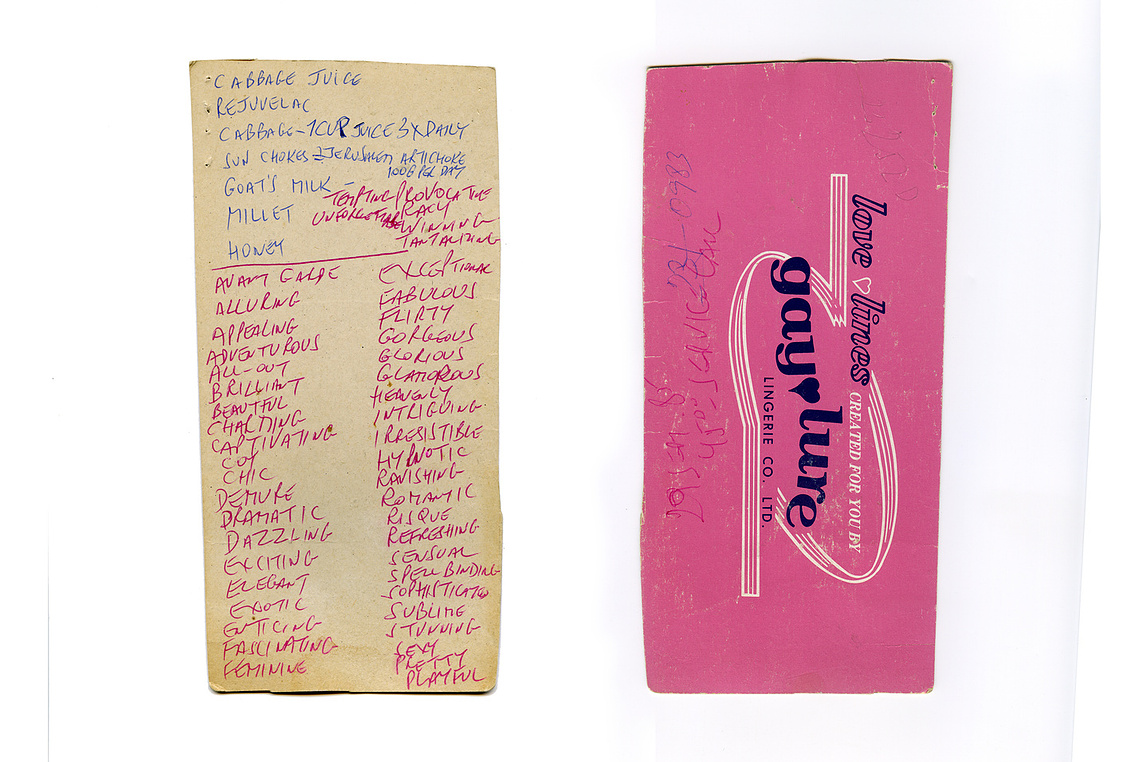 CABBAGE JUICE
REJUVELAC
CABBAGE-1CUP JUICE 3X DAILY
SUN CHOKES = JERUSALEM ARTICHOKE
100G PER DAY
GOAT'S MILK -
TEMPTING PROVOCATIVE
MILLET
UNFORGETTABLE RACY
WINNING
TANTALIZING
HONEY
AVANT GARDE
ALLURING
APPEALING
ADVENTUROUS
ALL-OUT
BRILLIANT
BEAUTFUL
CHARMING
CAPTIVATING
COY
CHIC
DEMURE
DRAMATIC
DAZZLING
EXCITING
ELEGANT
EXOTIC
ENTICING
FASCINATING
FEMININE
EXCEPTIONAL
FABULOUS
FLIRTY
GORGEOUS
GLORIOUS
GLAMOROUS
HEAVENLY
INTRIGUING
IRRESISTIBLE
HYPNOTIC
RAVISHING
ROMANTIC
RISQUE
REFRESHING
SENSUAL
SPELLBINDING
SOPHISTICATED
SUBLIME
STUNNING
SEXY
PRETTY
PLAYFUL
love lines
CREATED FOR YOU BY
gay lure
LINGERIE CO. LTD.